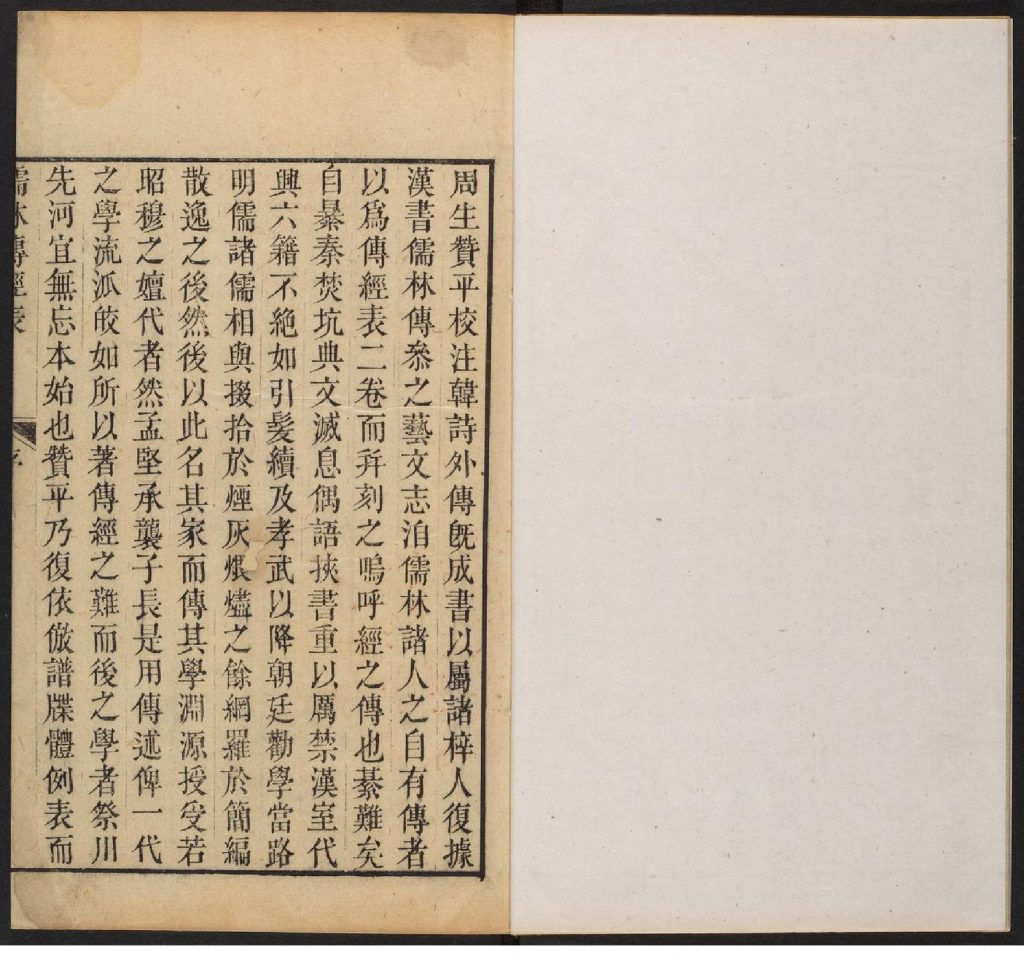 周生贊平校注韓詩外傳旣成書以屬諸梓人復據
漢書儒林傳叅之藝文志洎儒林諸人之自有傳者
以爲傳經表二卷而幷刻之嗚呼經之傳也綦難矣
自暴秦焚坑典文滅息偶語挾書重以厲禁漢室代
興六籍不絶如引髮續及孝武以降朝廷勸學當路
明儒諸儒相與掇拾於煙灰煨燼之餘網羅於簡編
散逸之後然後以此名其家而傳其學淵源授受若
昭穆之嬗代者然孟堅承襲子長是用傳述俾一代
之學流派皎如所以著傳經之難而後之學者祭川
先河宜無忘本始也贊平乃復依倣譜牒體例表而
儒林傳經表
序